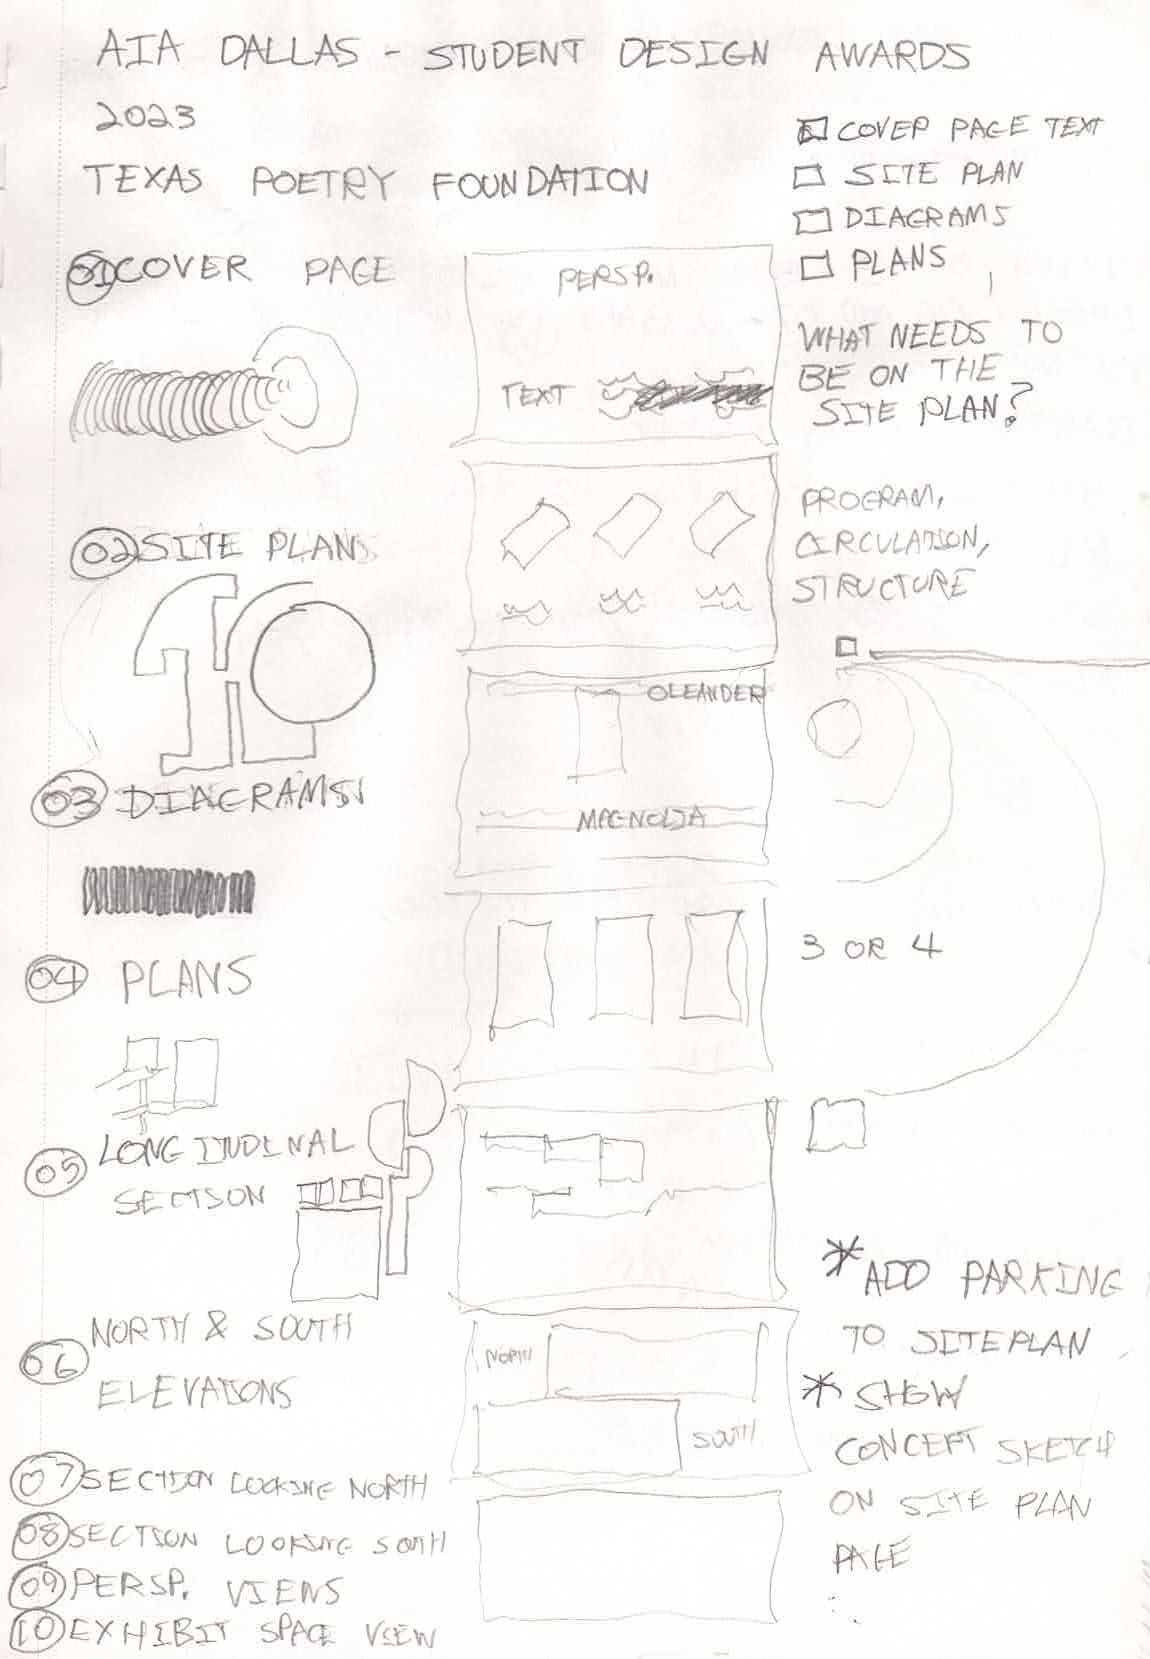 AIA DALLAS - STUDENT DESIGN AWARDS
2023
TEXAS POETRY FOUNDATION
COVER PAGE TEXT
SITE PLAN
DIAGRAMS
PLANS
01 COVER PAGE
PERSP.
TEXT
WHAT NEEDS TO
BE ON THE
SITE PLAN?
02 SITE PLANS
PROGRAM,
CIRCULATION,
STRUCTURE
OLEANDER
MAGNOLIA
03 DIAGRAMS
04 PLANS
3 OR 4
05 LONGITUDINAL
SECTION
06 NORTH & SOUTH
ELEVATIONS
NORTH
SOUTH
* ADD PARKING
TO SITE PLAN
* SHOW
CONCEPT SKETCH
ON SITE PLAN
PAGE
07 SECTION LOOKING NORTH
08 SECTION LOOKING SOUTH
09 PERSP. VIEWS
10 EXHIBIT SPACE VIEW